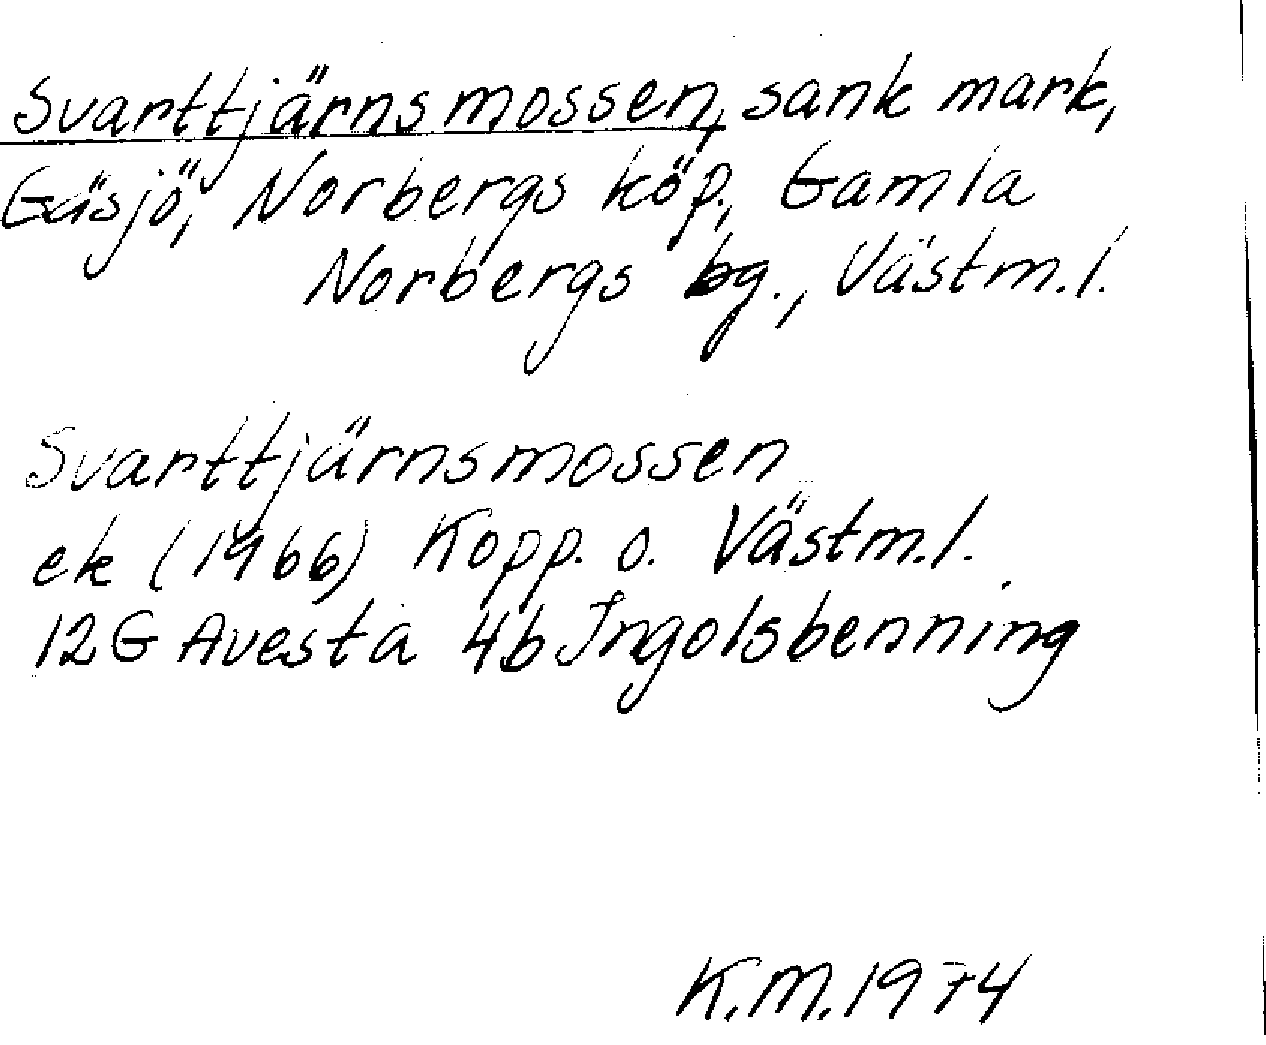 Svarttjärnsmossen, sank mark,
Gäsjö, Norbergs köp., Gamla
Norbergs bg., Västm.l.
Svarttjärnsmossen
ek (1966) Kopp. o. Västm.l.
12G Avesta 4b Ingolsbenning
K.M. 1974